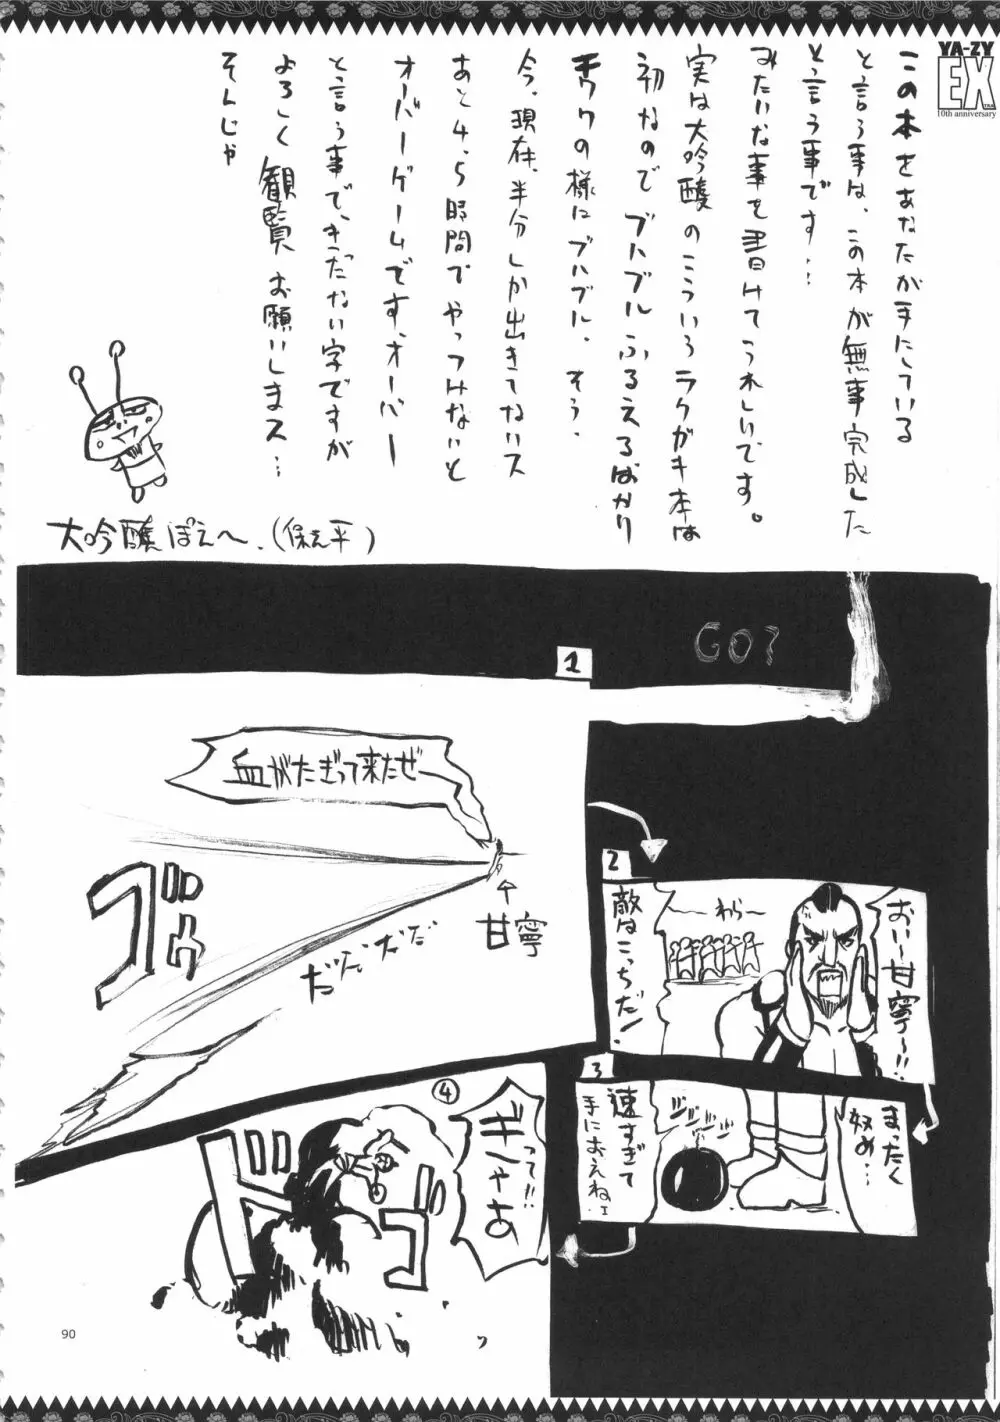 YA-ZY
EX
TRA
10th anniversary
この本をあなたが手にしている
と言う事は、この本が無事完成した
と言う事です…
みたいな事を書けてうれしいです。
実は大吟醸のこういうラクガキ本は
初なのでブルブルふるえるばかり
チワワの様にブルブル、そう、
今、現在、半分しか出きてないス
あと4、5時間でやっつけないと
オーバーゲームです、オーバー
と言う事で、きったない字ですが
よろしく観覧お願いしまス…
そんじゃ
大吟醸ぽえへ、(保え平)
GO?
1
血がたぎって来たぜ
ゴゥ
甘寧
だだだだ
2
おい〜甘寧〜!!
わら〜
敵はこっちだ!
3
まったく
奴め…
ジジジ
速すぎて
手におえねェ
④
ぎゃあ
って!!
ドゴ
ッ
90